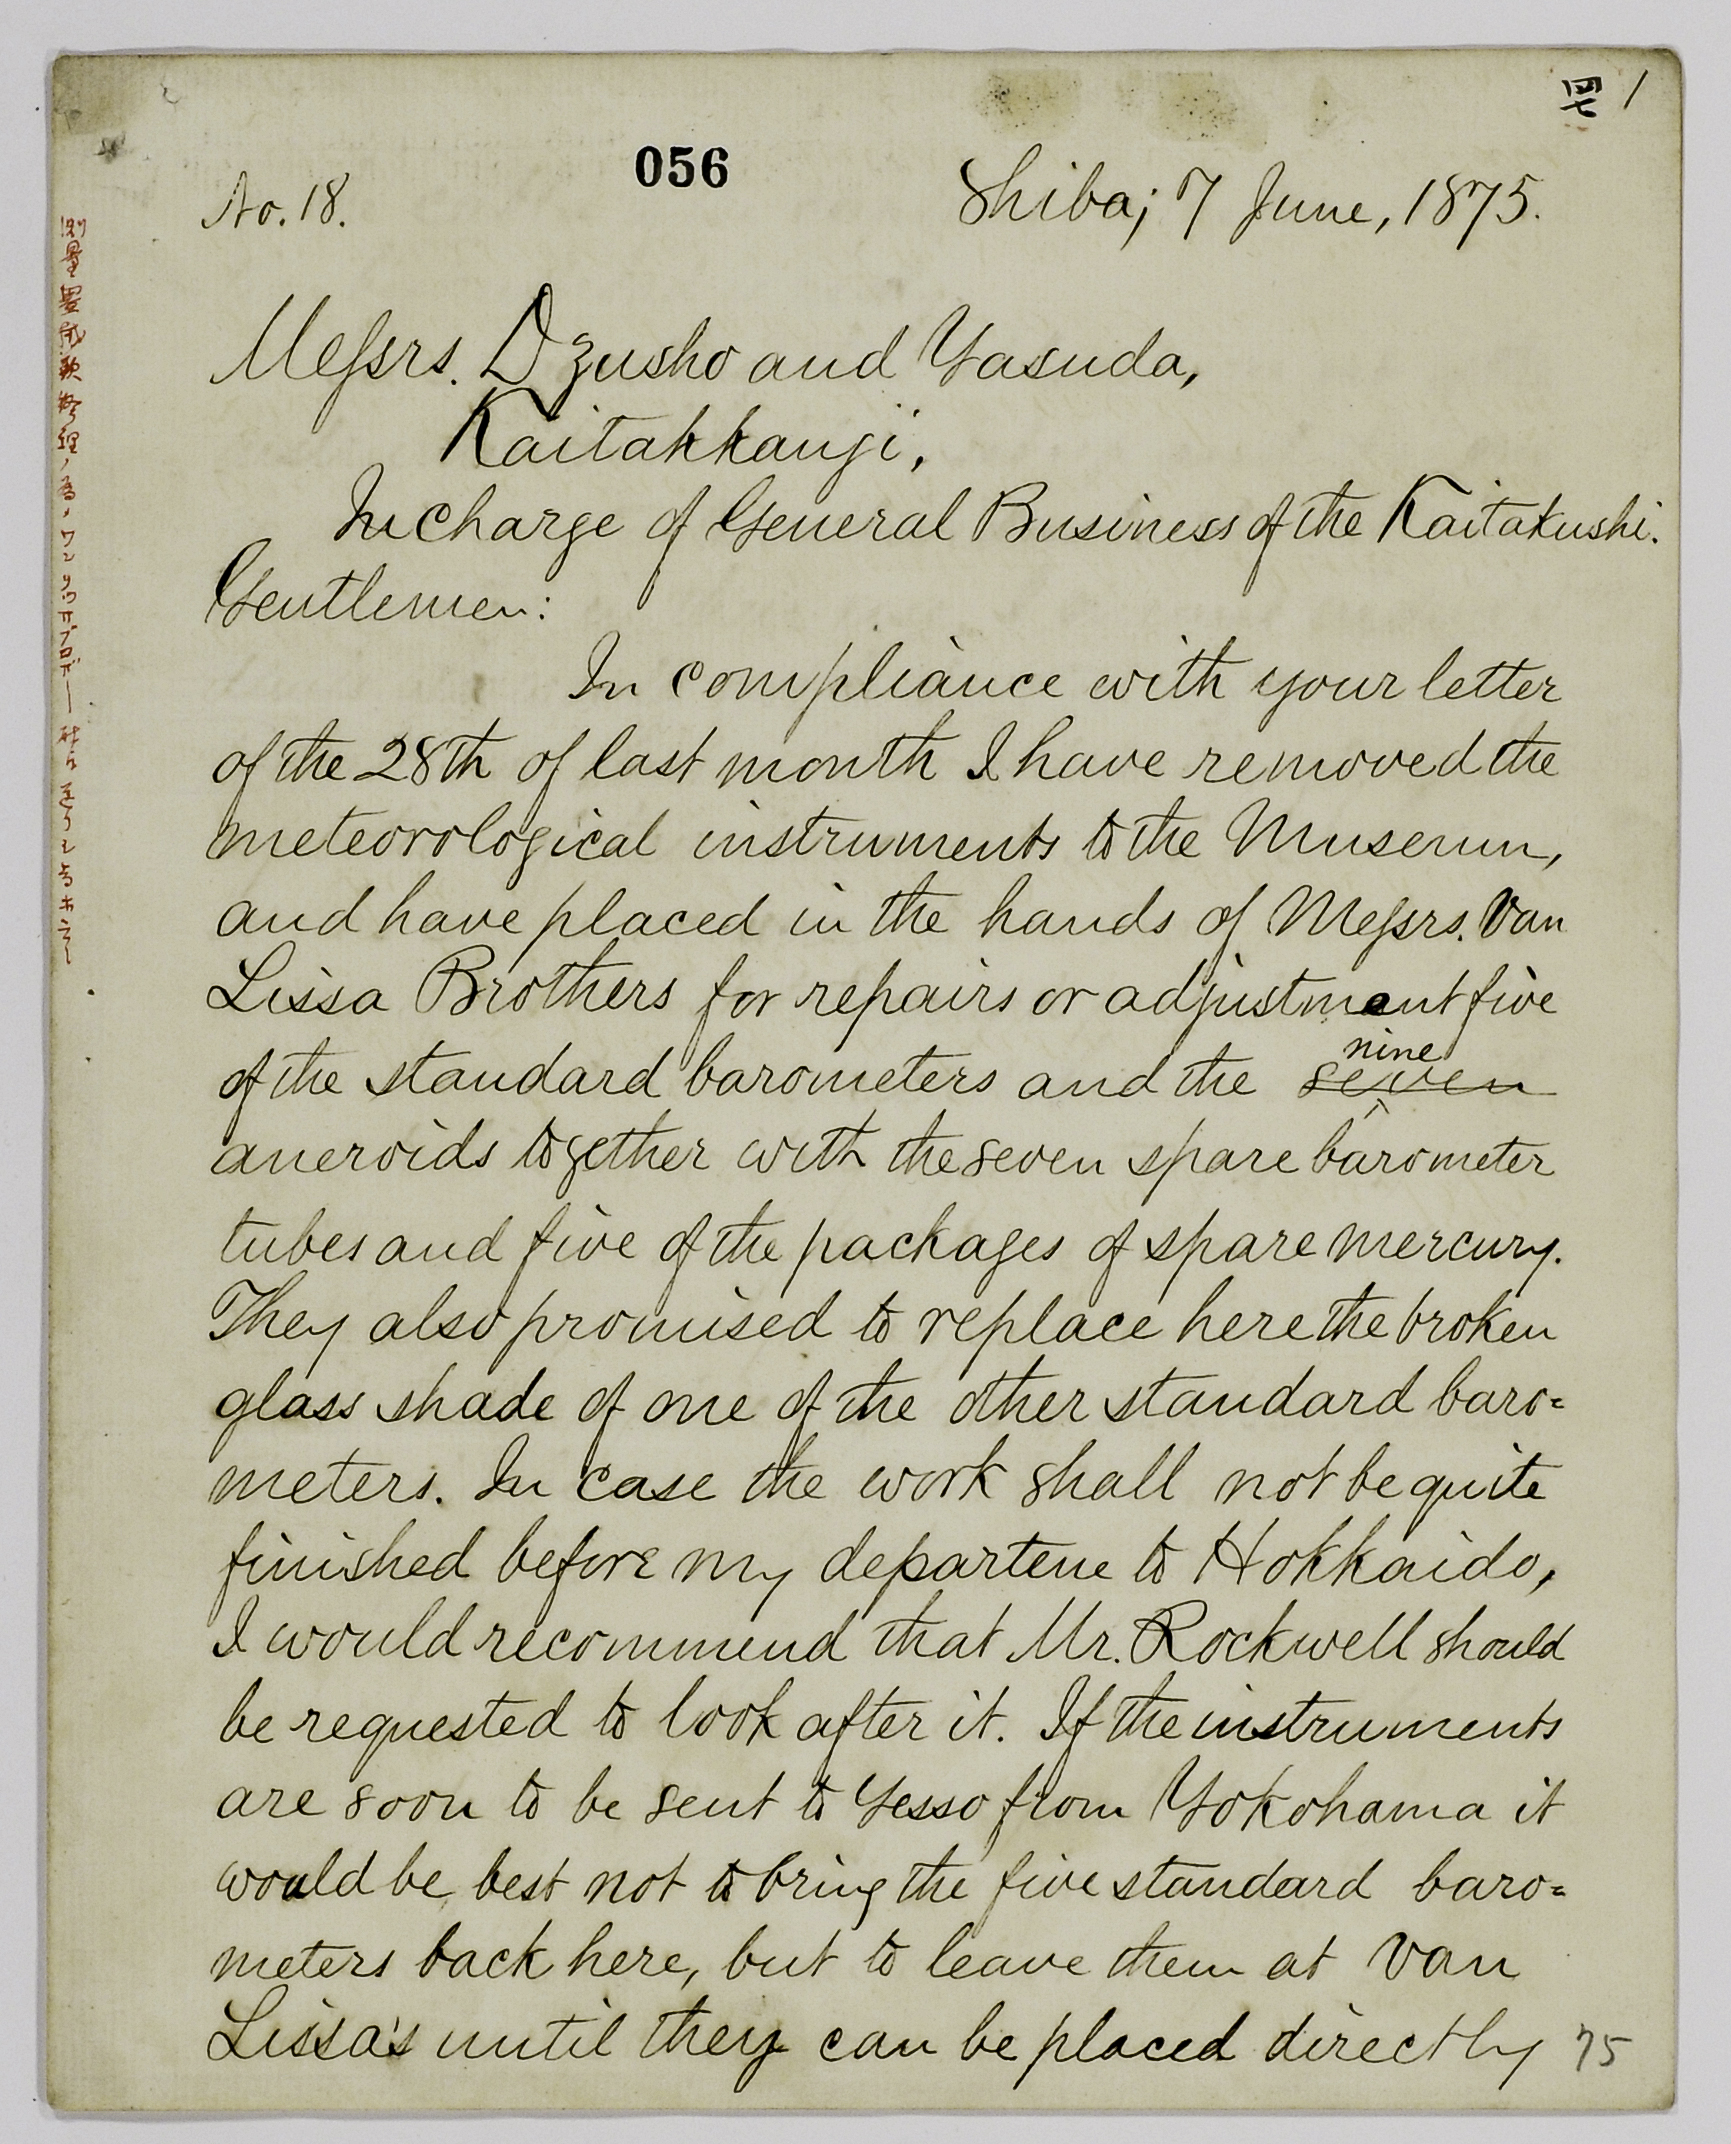 四七 1
056
No. 18.
Shiba; 7 June, 1875.
Messrs. Dzusho and Yasuda,
Kaitakkanji,
In charge of General Business of the Kaitakushi.
Gentlemen:
In compliance with your letter
of the 28th of last month I have removed the
meteorological instruments to the Museum,
and have placed in the hands of Messrs. Van
Lissa Brothers for repairs or adjustment five
of the standard barometers and the seven nine
aneroids together with the seven spare barometer
tubes and five of the packages of spare mercury.
They also promised to replace here the broken
glass shade of one of the other standard baro=
meters. In case the work shall not be quite
finished before my departure to Hokkaido,
I would recommend that Mr. Rockwell should
be requested to look after it. If the instruments
are soon to be sent to Yesso from Yokohama it
would be best not to bring the five standard baro=
meters back here, but to leave them at Van
Lissa's until they can be placed directly
75
測量器械
修理ノ為